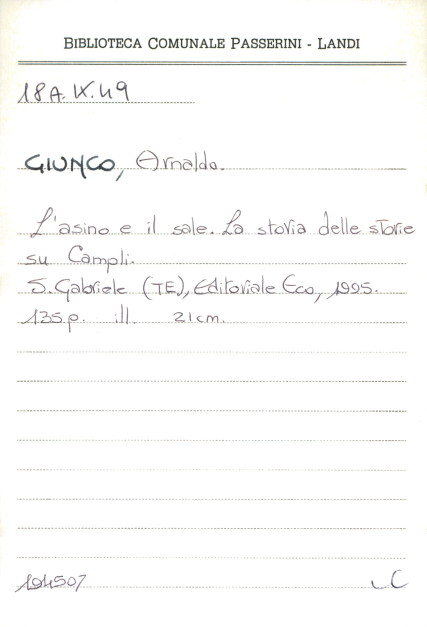 BIBLIOTECA COMUNALE PASSERINI - LANDI
18A.IX.49
GIUNCO, Arnaldo.
L'asino e il sale. La storia delle storie
su Campli.
S. Gabriele (TE), Editoriale Eco, 1995.
135 p. ill. 21 cm.
194507